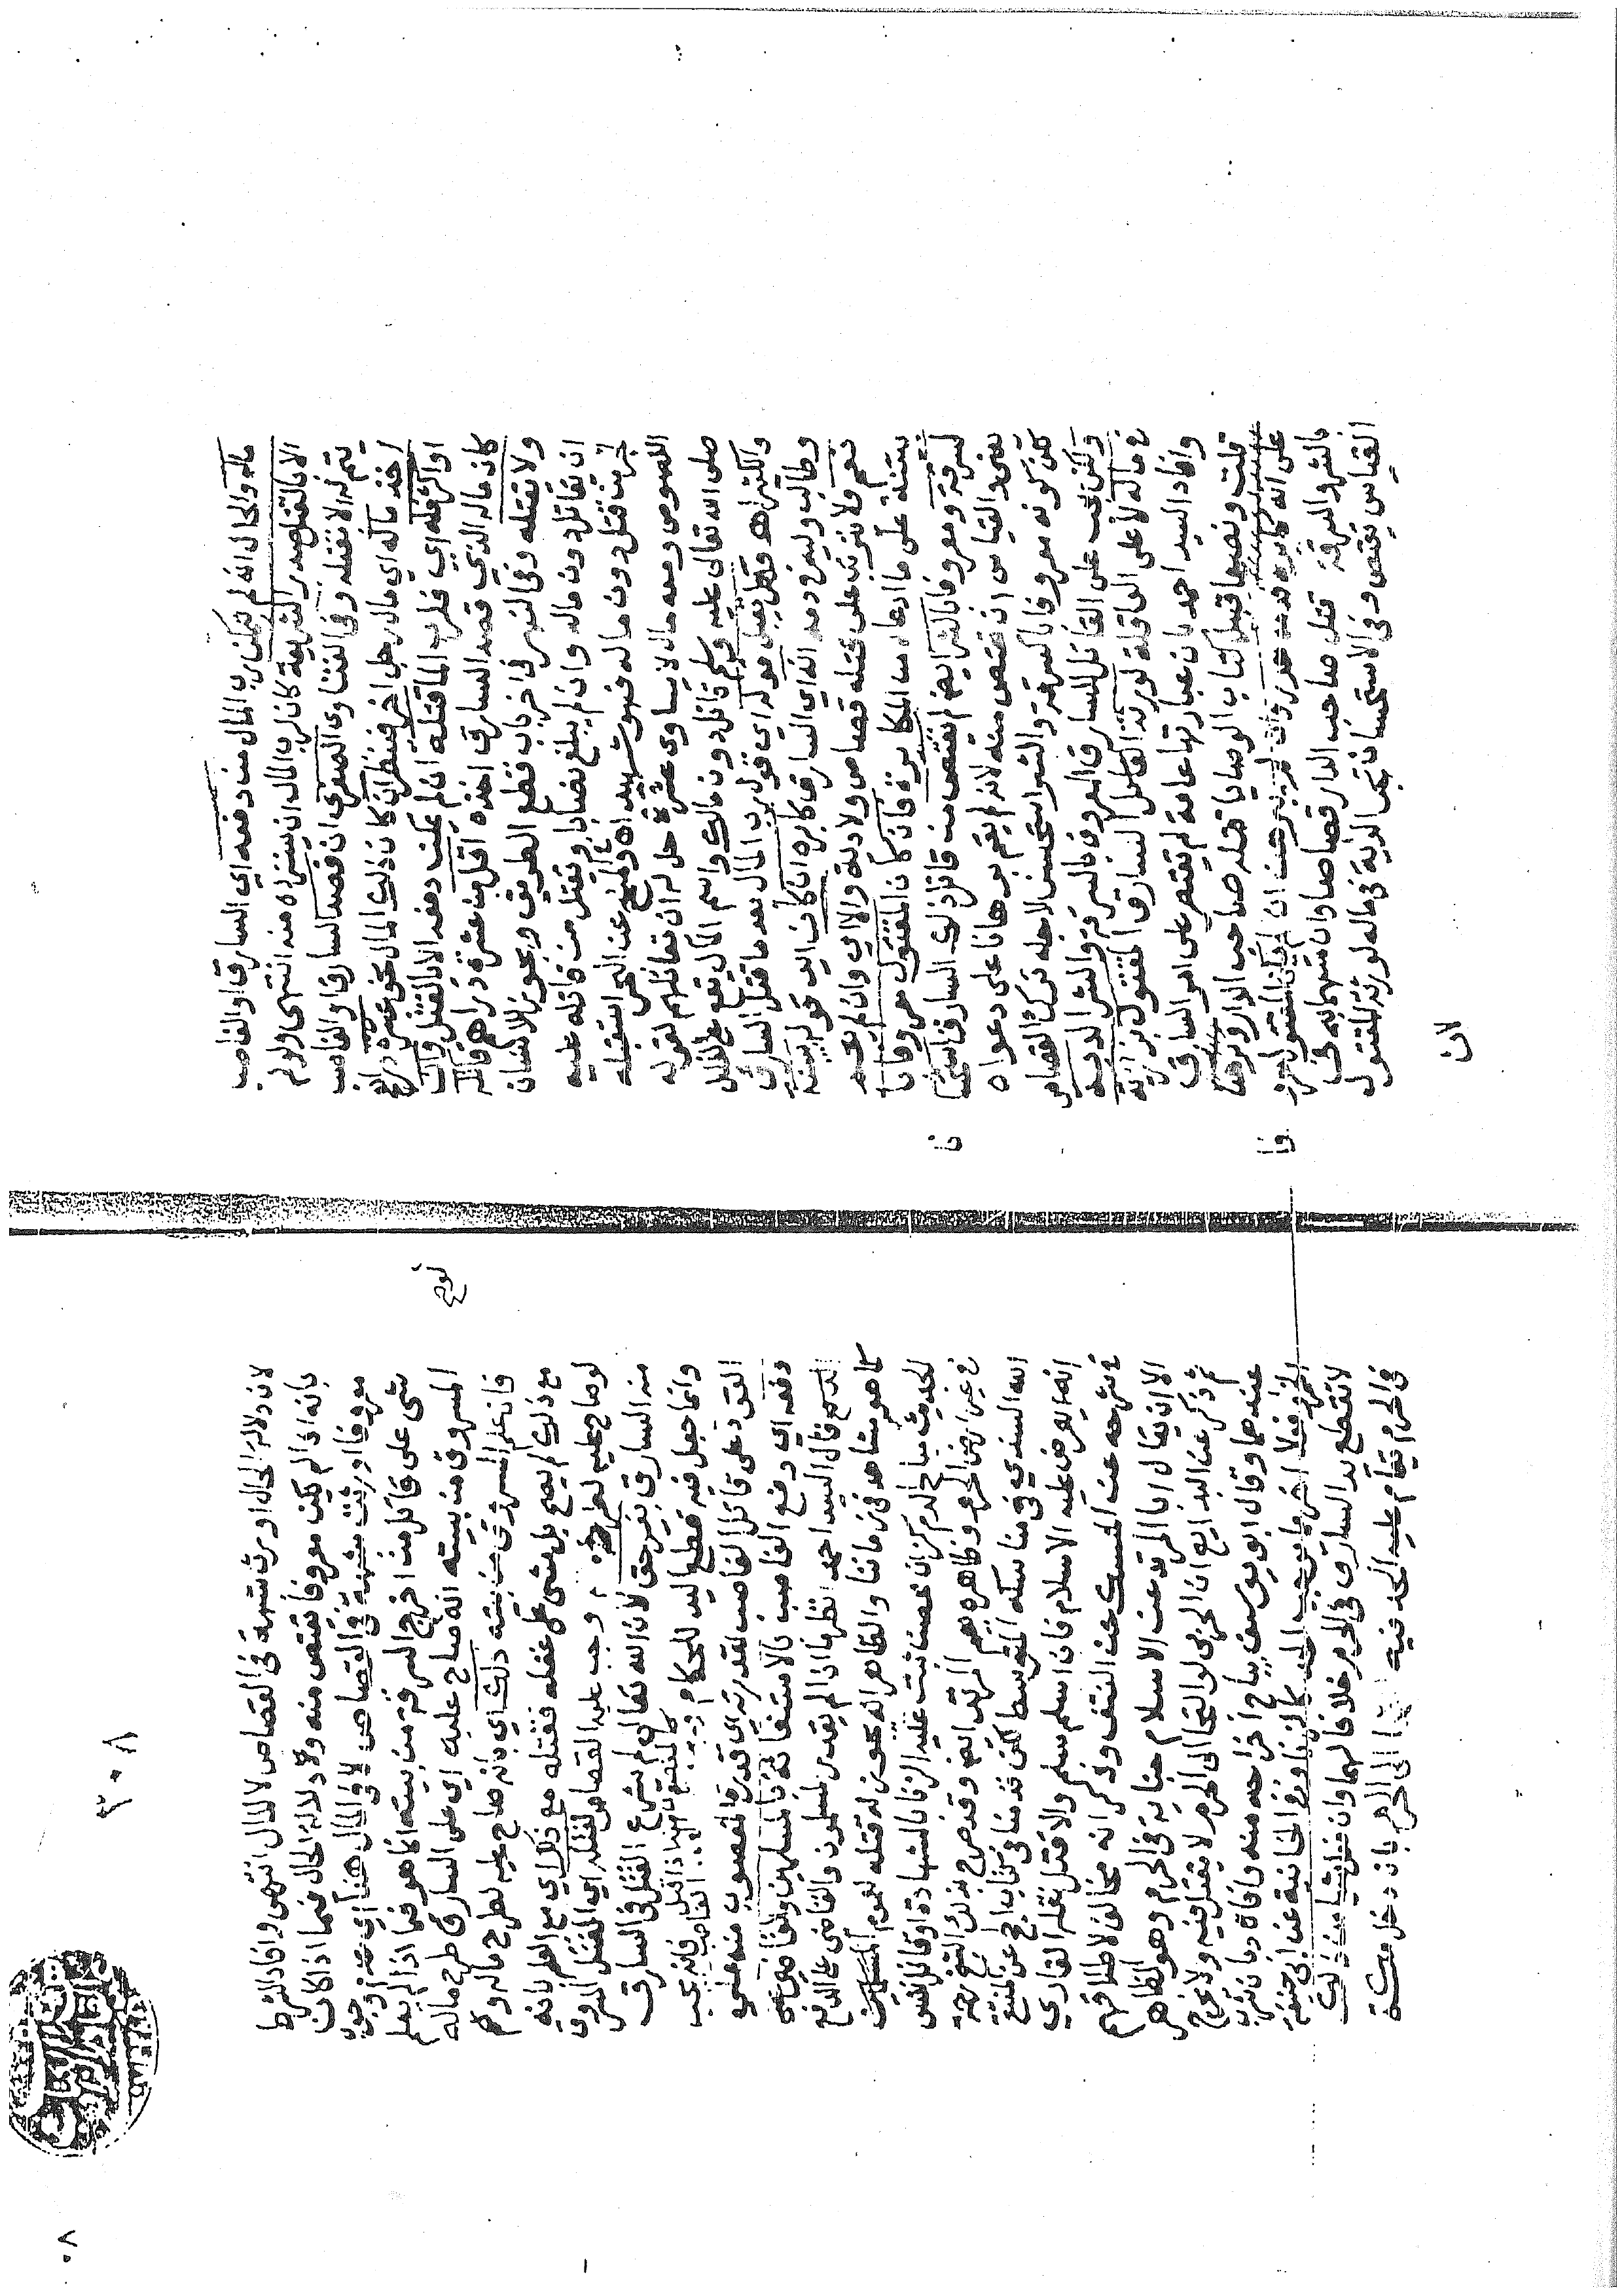 ماله والحال انه لم يتمكن رب المال من دفعه اي السارق او الغاصب
الا بالقتل صدر الشريعة كان لرب المال ان يسترده منه انتهى ولو لم
يتم له الا بقتله وفي الفتاوى الصغرى ان قصد السارق او الغاصب
اخذ ماله اي مال رجل اخر فينظر ان كان ذلك المال نحو عشرة دراهم
او اكثر فله اي فلرب المال قتله ان لم يمكن دفعه الا بالقتل وان
كان ماله الذي قصد السارق اخذه اقل من عشرة دراهم قاتله
ولا تقتله وفي النهر في اخر باب قطع الطريق ويجوز للانسان
ان يقاتل دون ماله وان لم يبلغ نصابا ويقتل من قاتله عليه
لخبر من قتل دون ماله فهو شهيد اه وفي المنح عن البحر استقبله
اللصوص ومعه مال لا يساوي عشرة حل له ان يقاتلهم لقوله
صلى الله تعالى عليه وسلم قاتل دون مالك واسم المال يقع على القليل
والكثير اه وهل يقبل قوله اي قول رب المال بعد ما قتل السارق
وطالب وليه في دمه انه اي السارق كابره ان كانت له بينة
نعم ولا يترتب على قتله قصاص ولا دية والا اي وان لم تكن له
بينة على ما ادعاه من المكابرة فان كان المقتول معروفا
بالسرقة ومعروفا بالشر ايضا لم يقتص من قاتل ذلك السارق استحسانا
يعني والقياس ان يقتص منه لانه لم يقم برهانا على دعواه
لكن كونه معروفا بالسرقة والشر استحسن لاجله ترك القصاص
ولكن تجب على القاتل للسارق المعروف بالسرقة والشر الدية
في ماله لا على العاقلة لورثة القتيل السارق المقتول بزازية
وافاد السيد احمد بان عبارتها عامة لم تقتصر على امر السارق
قلت ونصها قبيل كتاب الوصايا قتله صاحب الدار وبرهن
على انه كابره فدمه هدر وان لم يبرهن ان لم يكن المقتول معروفا
بالشر والسرقة قتل صاحب الدار قصاصا وان متهما به في
القياس يقتص وفي الاستحسان تجب الدية في ماله لورثة المقتول
لان
٣٠٨
لان دلالة الحال اورثت شبهة في القصاص لا المال انتهى وافاد الشرط
بانه اذا لم يكن معروفا يقتص منه ودلالة الحال فيما اذا كان
معروفا اورثت شبهة في القصاص لا في المال هذا اي عدم وجوب
شئ على قاتل من اخرج السرقة من بيته انما هو فيما اذا لم يعلم
المسروق من بيته انه صاح عليه اي على السارق طرح ماله
فان علم المسروق من بيته ذلك اي بانه صاح عليه لطرح ماله وهم
مع ذلك لم يصح بل مشى على غفلة فقتله مع ذلك اي مع العلم بانه
لو صاح عليه لطرحه وجب عليه القصاص لقتله اي القتل المسروق
منه السارق بغير حق لان الله تعالى لم يشرع القتل في السارق
وانما جعل فيه قطع اليد للحكام كالمغصوب منه اذا قتل الغاصب فانه يجب
القود على قاتل الغاصب لقدرته اي قدرة المغصوب منه على
دفعه اي دفع الغاصب بالاستغاثة بالمسلمين والقاضي
الدسم قال السيد احمد انظر ما اذا لم يقدر المسلمون والقاضي على الدفع
كما هو مشاهد في زماننا والظاهر انه يجوز له قتله لعموم
الحديث مباح الدم كزان محصن ثبت عليه الزنا بالشهادة او قاتل نفس
في غير ارض الحرم وظاهره يعم المرتد ايضا وقد صرح بذلك الشيخ رحمة
الله السندي في مناسكه المتوسط لكن قدمنا في كتاب الحج عن المنتقى
انه يعرض عليه الاسلام فان اسلم سلم والا قتل نقله القاري
في شرحه عن المنسك عن النتف وذكر انه مخالف لاطلاقهم
الا ان يقال اباء المرتد عن الاسلام جناية في الحرم وهو الظاهر
ثم ذكر عن البدايع ان الحربي لو التجا الى الحرم لا يقتل فيه ولا يخرج
عندهما وقال ابو يوسف يباح اخراجه منه وافاد بان شرب
الخمر وفعل اخر ما يوجب الحد كالزنا وفي الخانية عن ابي حنيفة
لا تقطع يد السارق في الحرم خلافا لهما وان فعل شيئا من ذلك
في الحرم يقام عليه الحد فيه التجا الى الحرم بان دخل مكة